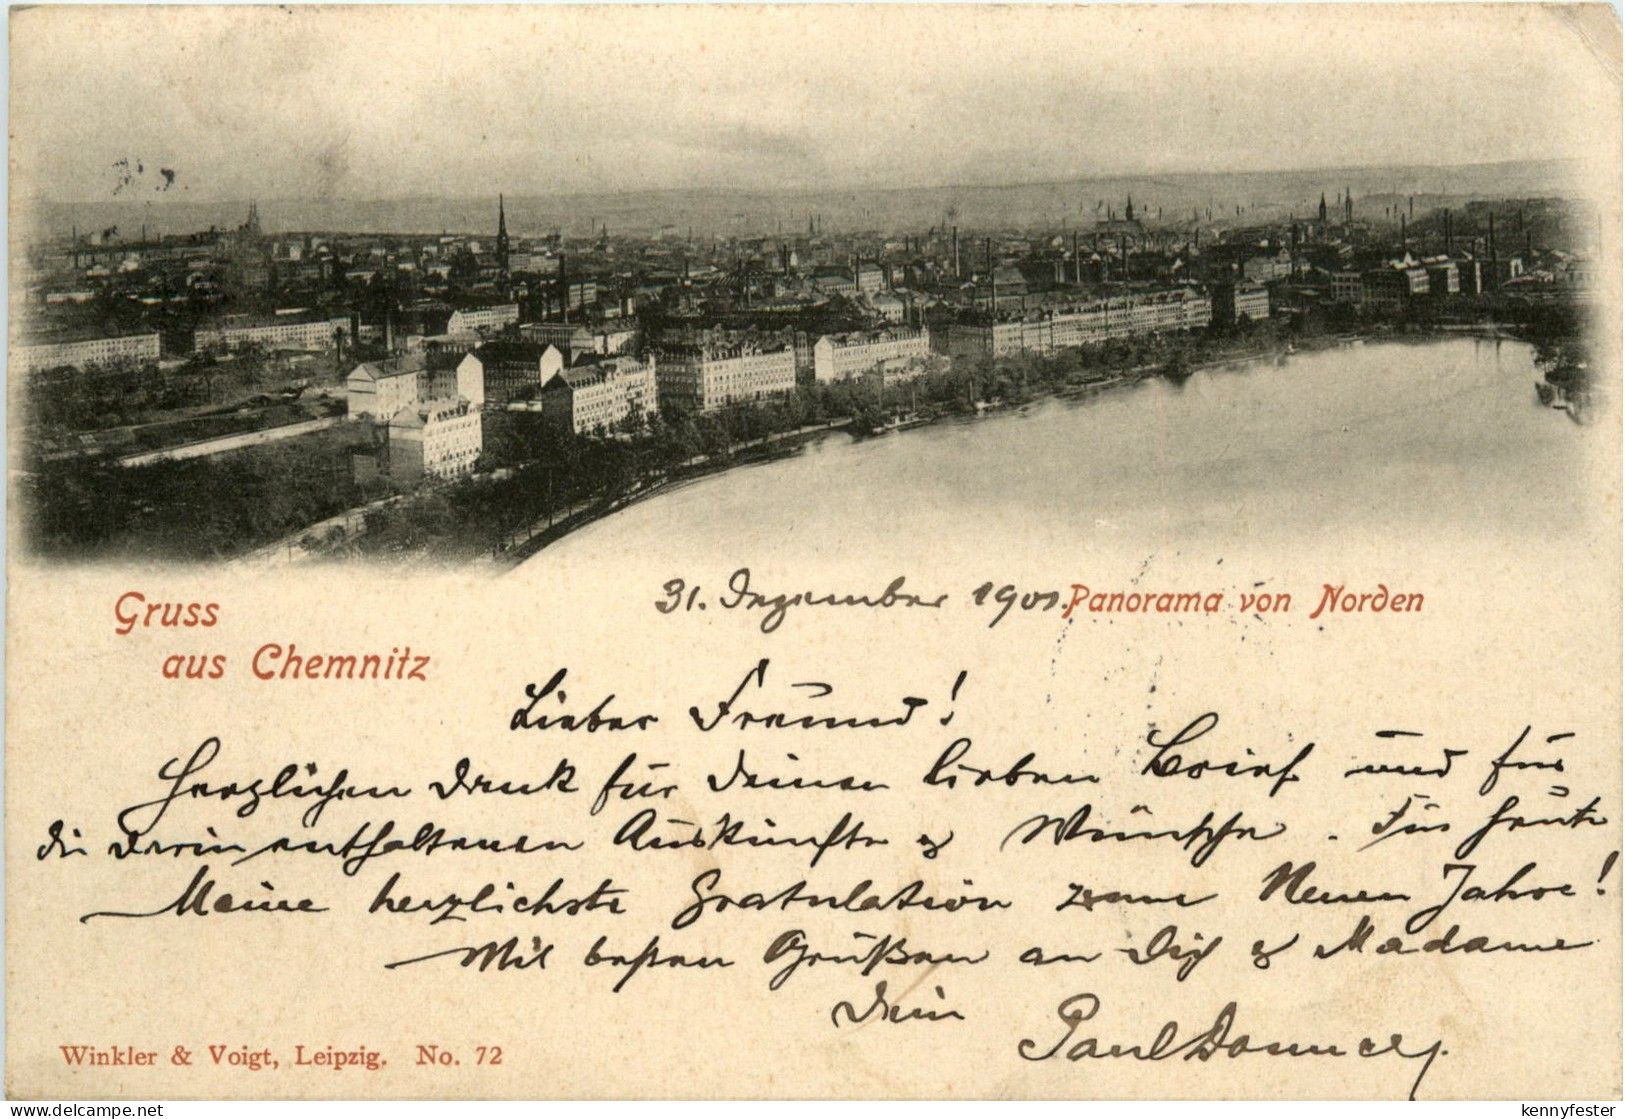 Gruss
aus Chemnitz
31. Dezember Panorama von Norden
Lieber Freund!
Herzlichen Dank für Deinen lieben Brief und für
die darin enthaltenen Auskünfte & Wünsche. Für heute
Meine herzlichste Gratulation zum Neuen Jahre!
Mit besten Grüßen an Dich & Madame
Dein
Paul
Winkler & Voigt, Leipzig. No. 72
www.delcampe.net
kennyfester